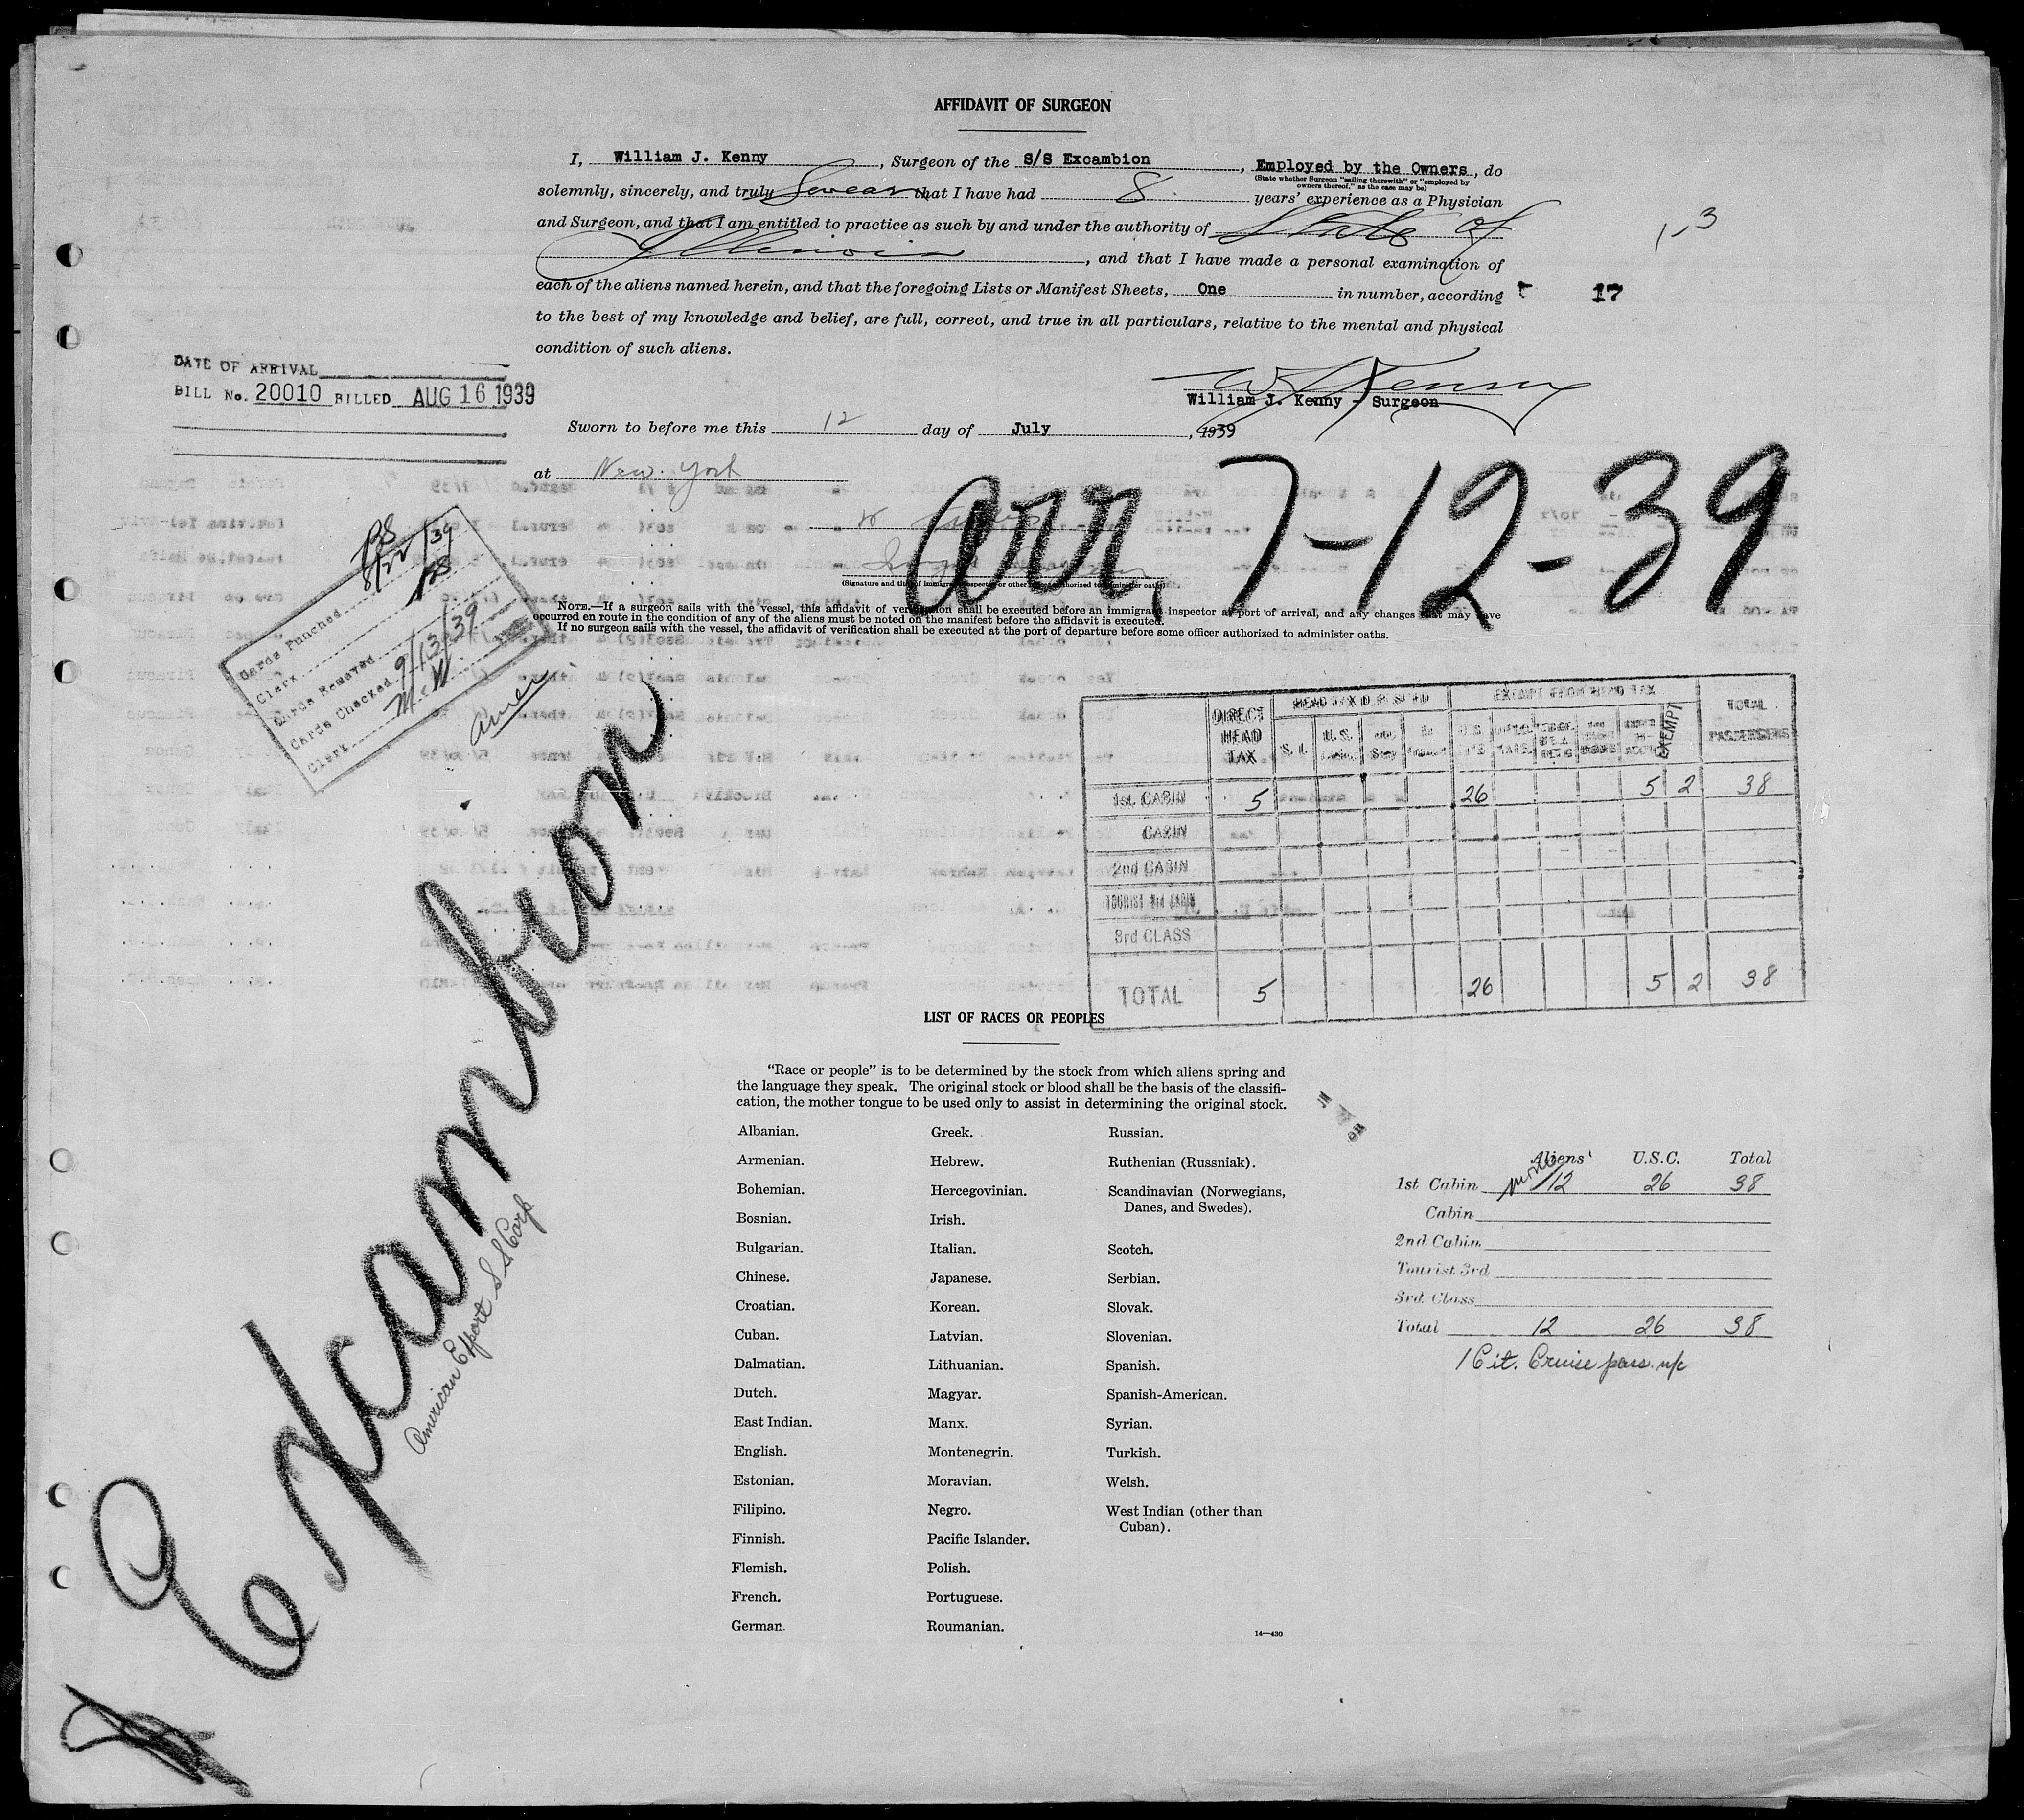 AFFIDAVIT OF SURGEON
I, William J. Kenny, Surgeon of the S/S Excambion, Employed by the Owners, do
(State whether Surgeon "sailing therewith" or "employed by
owners thereof," as the case may be)
solemnly, sincerely, and truly Swear that I have had 8 years' experience as a Physician
and Surgeon, and that I am entitled to practice as such by and under the authority of State of
Illinois, and that I have made a personal examination of
1-3
each of the aliens named herein, and that the foregoing Lists or Manifest Sheets, One in number, according
17
to the best of my knowledge and belief, are full, correct, and true in all particulars, relative to the mental and physical
condition of such aliens.
DATE OF ARRIVAL
BILL No. 20010 BILLED AUG 16 1939
W J Kenny
William J. Kenny - Surgeon
Sworn to before me this 12 day of July, 1939
at New York
arr, 7-12-39
(Signature and title of immigrant inspector or other officer authorized to administer oaths)
NOTE.—If a surgeon sails with the vessel, this affidavit of verification shall be executed before an immigrant inspector at port of arrival, and any changes that may have
occurred en route in the condition of any of the aliens must be noted on the manifest before the affidavit is executed.
If no surgeon sails with the vessel, the affidavit of verification shall be executed at the port of departure before some officer authorized to administer oaths.
Cards Punched 8/22/39
Clerk
Cards Removed
Cards Checked 9/13/39
Clerk McN.
Amer
DIRECT HEAD TAX
EXEMPT FROM HEAD TAX
EXEMPT
TOTAL PASSENGERS
1st. CABIN 5 26 5 2 38
CABIN
2nd CABIN
TOURIST 3rd CABIN
3rd CLASS
TOTAL 5 26 5 2 38
Excambion
American Export S S Corp
LIST OF RACES OR PEOPLES
"Race or people" is to be determined by the stock from which aliens spring and
the language they speak. The original stock or blood shall be the basis of the classifi-
cation, the mother tongue to be used only to assist in determining the original stock.
Albanian.
Armenian.
Bohemian.
Bosnian.
Bulgarian.
Chinese.
Croatian.
Cuban.
Dalmatian.
Dutch.
East Indian.
English.
Estonian.
Filipino.
Finnish.
Flemish.
French.
German.
Greek.
Hebrew.
Hercegovinian.
Irish.
Italian.
Japanese.
Korean.
Latvian.
Lithuanian.
Magyar.
Manx.
Montenegrin.
Moravian.
Negro.
Pacific Islander.
Polish.
Portuguese.
Roumanian.
Russian.
Ruthenian (Russniak).
Scandinavian (Norwegians,
Danes, and Swedes).
Scotch.
Serbian.
Slovak.
Slovenian.
Spanish.
Spanish-American.
Syrian.
Turkish.
Welsh.
West Indian (other than
Cuban).
14—430
Aliens U.S.C. Total
1st Cabin 12 26 38
Cabin
2nd Cabin
Tourist 3rd
3rd Class
Total 12 26 38
1 Cit. Cruise pass. n/c